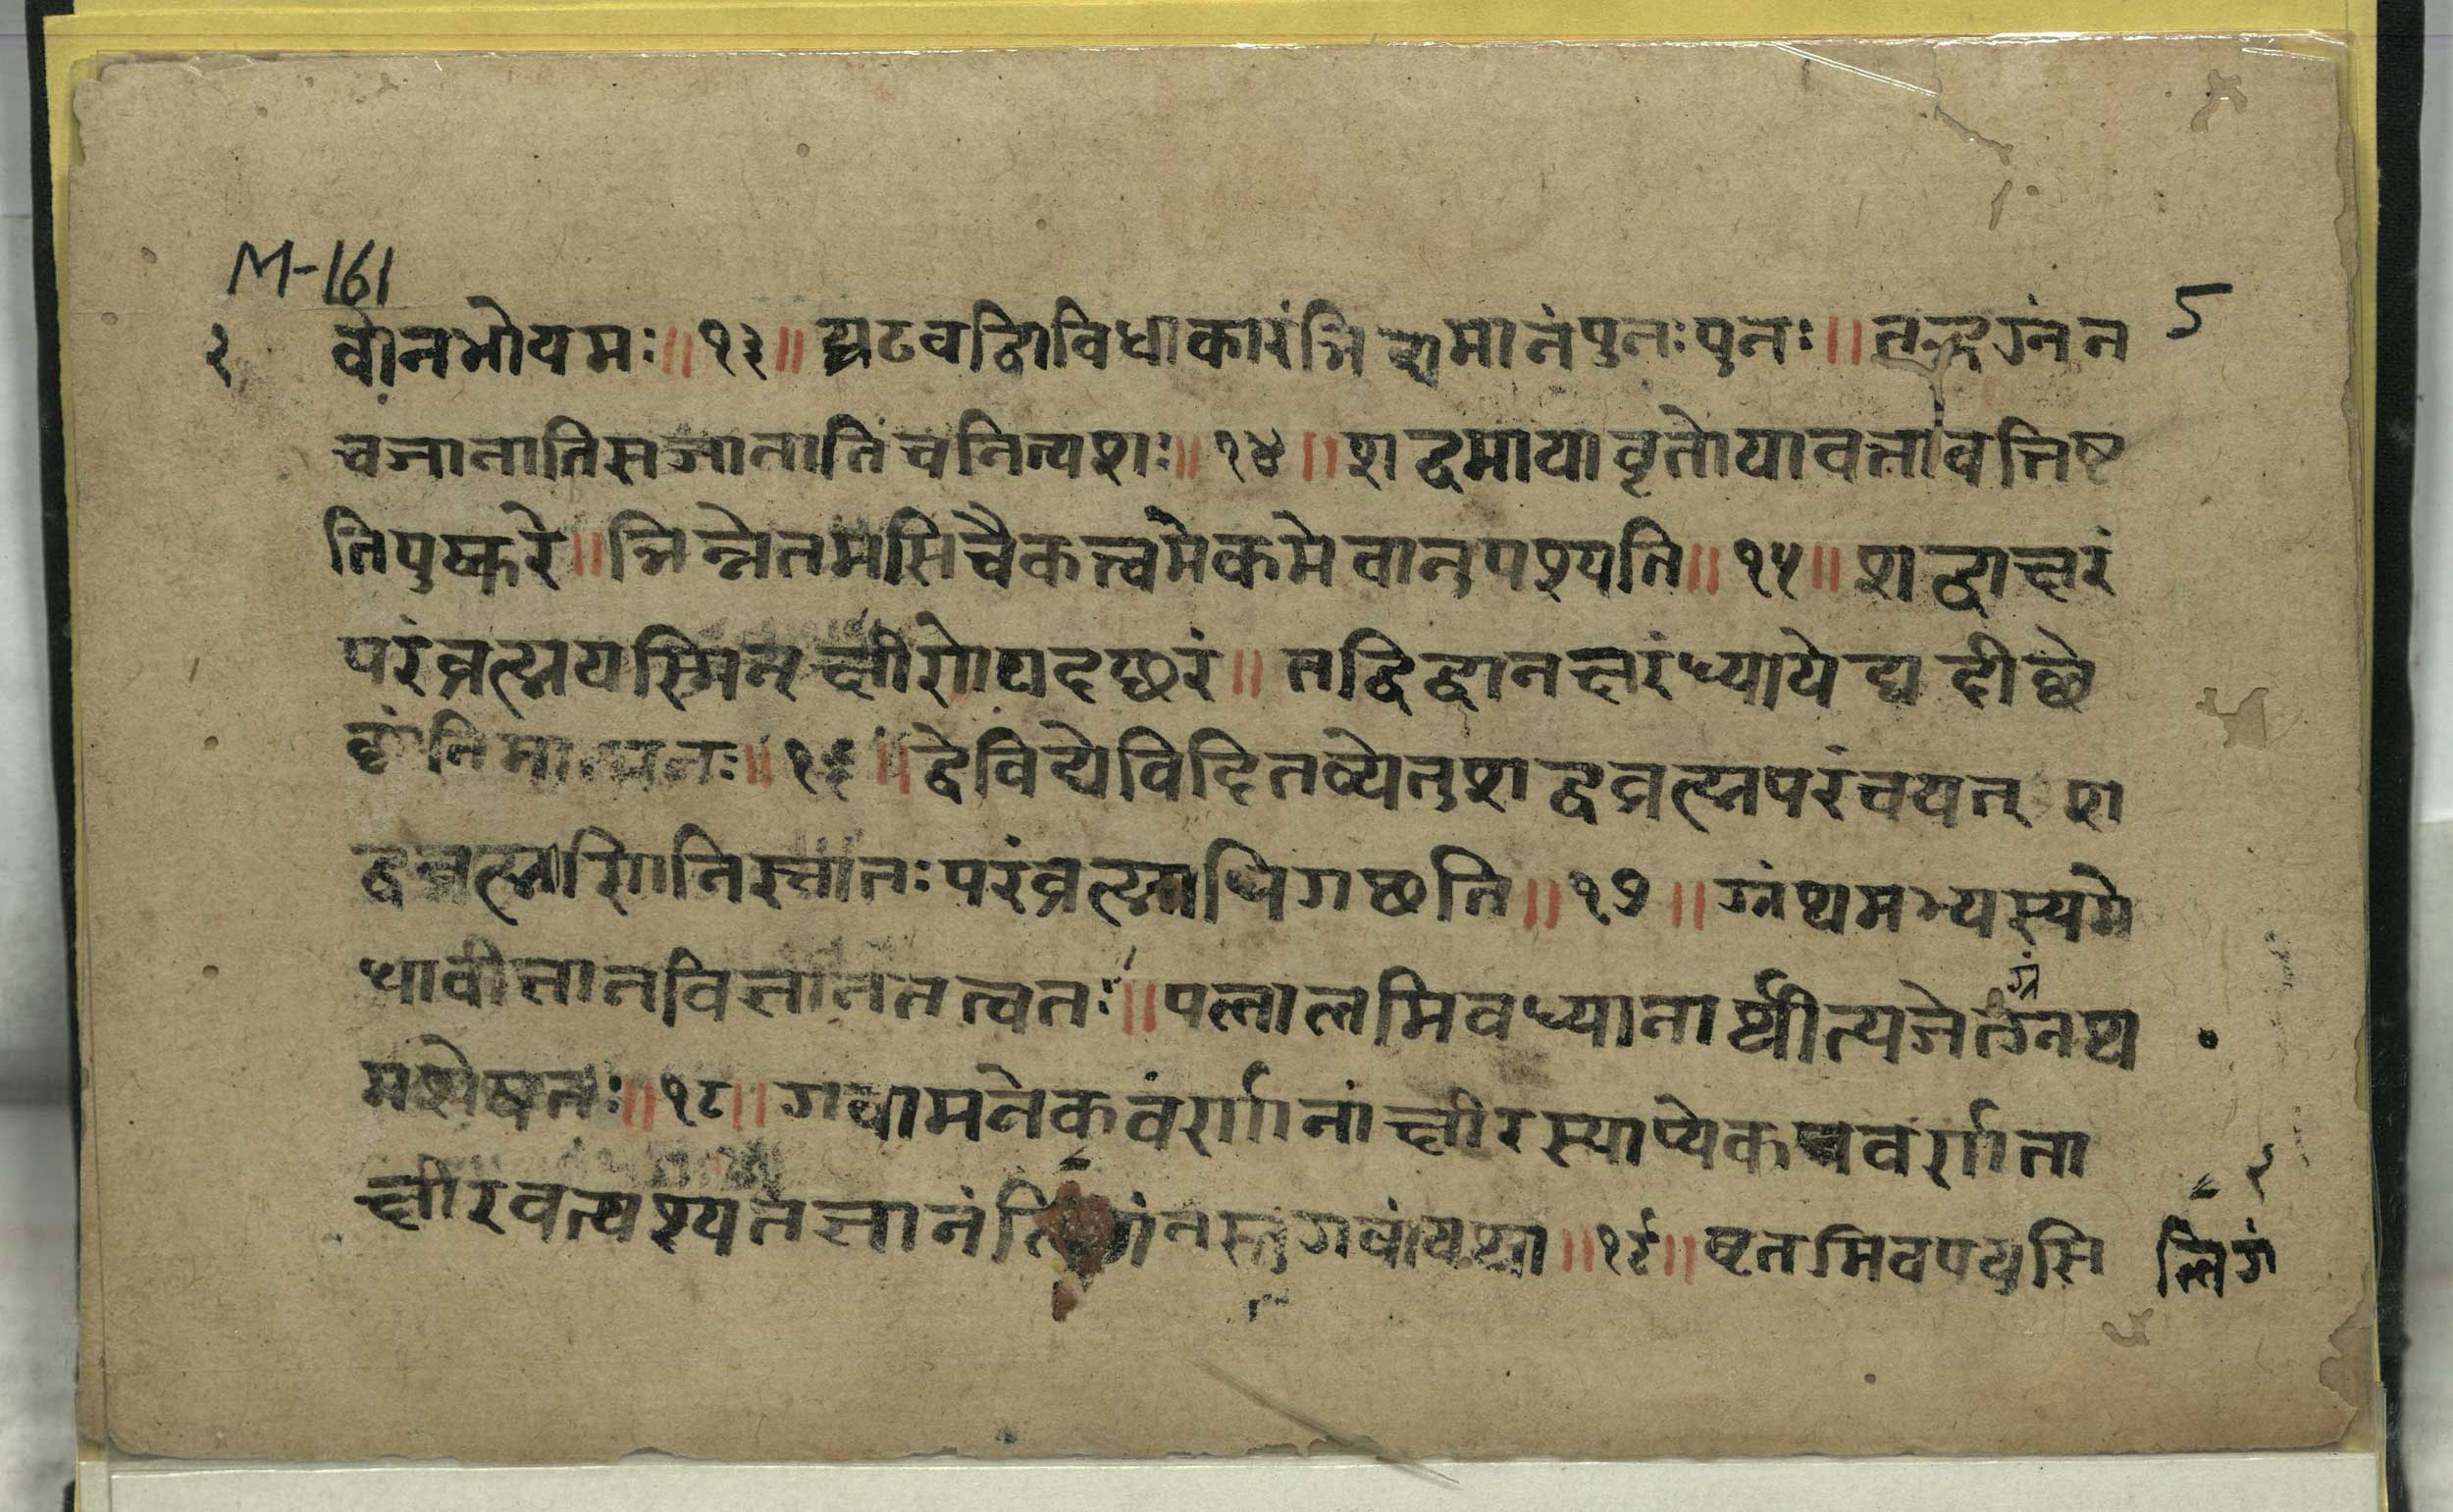 M-161
२ वोनभोयमः॥१३॥घटवद्विविधाकारंभिद्यमानंपुनःपुनः॥तद्भग्नंन 5
चजानातिसजानातिचनित्यशः॥१४॥शब्दमायावृतोयावत्तावत्तिष्ट
तिपुष्करे॥भिन्नेतमसिचैकत्त्वमेकमेवानुपश्यति॥१५॥शब्दाक्षरं
परंब्रह्मयस्मिन्क्षीणेयदक्षरं॥तद्विद्वानक्षरंध्यायेद्यदीछे
छांतिमात्मनः॥१६॥द्वेविद्येवेदितव्येतुशब्दब्रह्मपरंचयत् श
ब्दब्रह्मणिनिस्नातःपरंब्रह्माधिगछति॥१७॥ग्रंथमभ्यस्यमे
धावीज्ञानविज्ञानतत्वतः॥पलालमिवध्यानार्थीत्यजेत्
ग्रं
मशेषतः॥१८॥गवामनेकवर्णानांक्षीरस्याप्येकवर्णाता
क्षीरवत्पश्यतज्ञानं नस्तुगवांयथा॥१९॥घृतमिवपयसि
२
लिंगं